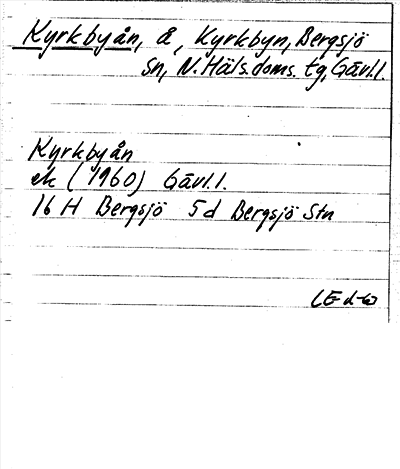 Kyrkbyån, å, Kyrkbyn, Bergsjö
Sn, N. Häls. doms. tg, Gävl.l.
Kyrkbyån
ek (1960) Gävl.l.
16 H Bergsjö 5d Bergsjö Stn